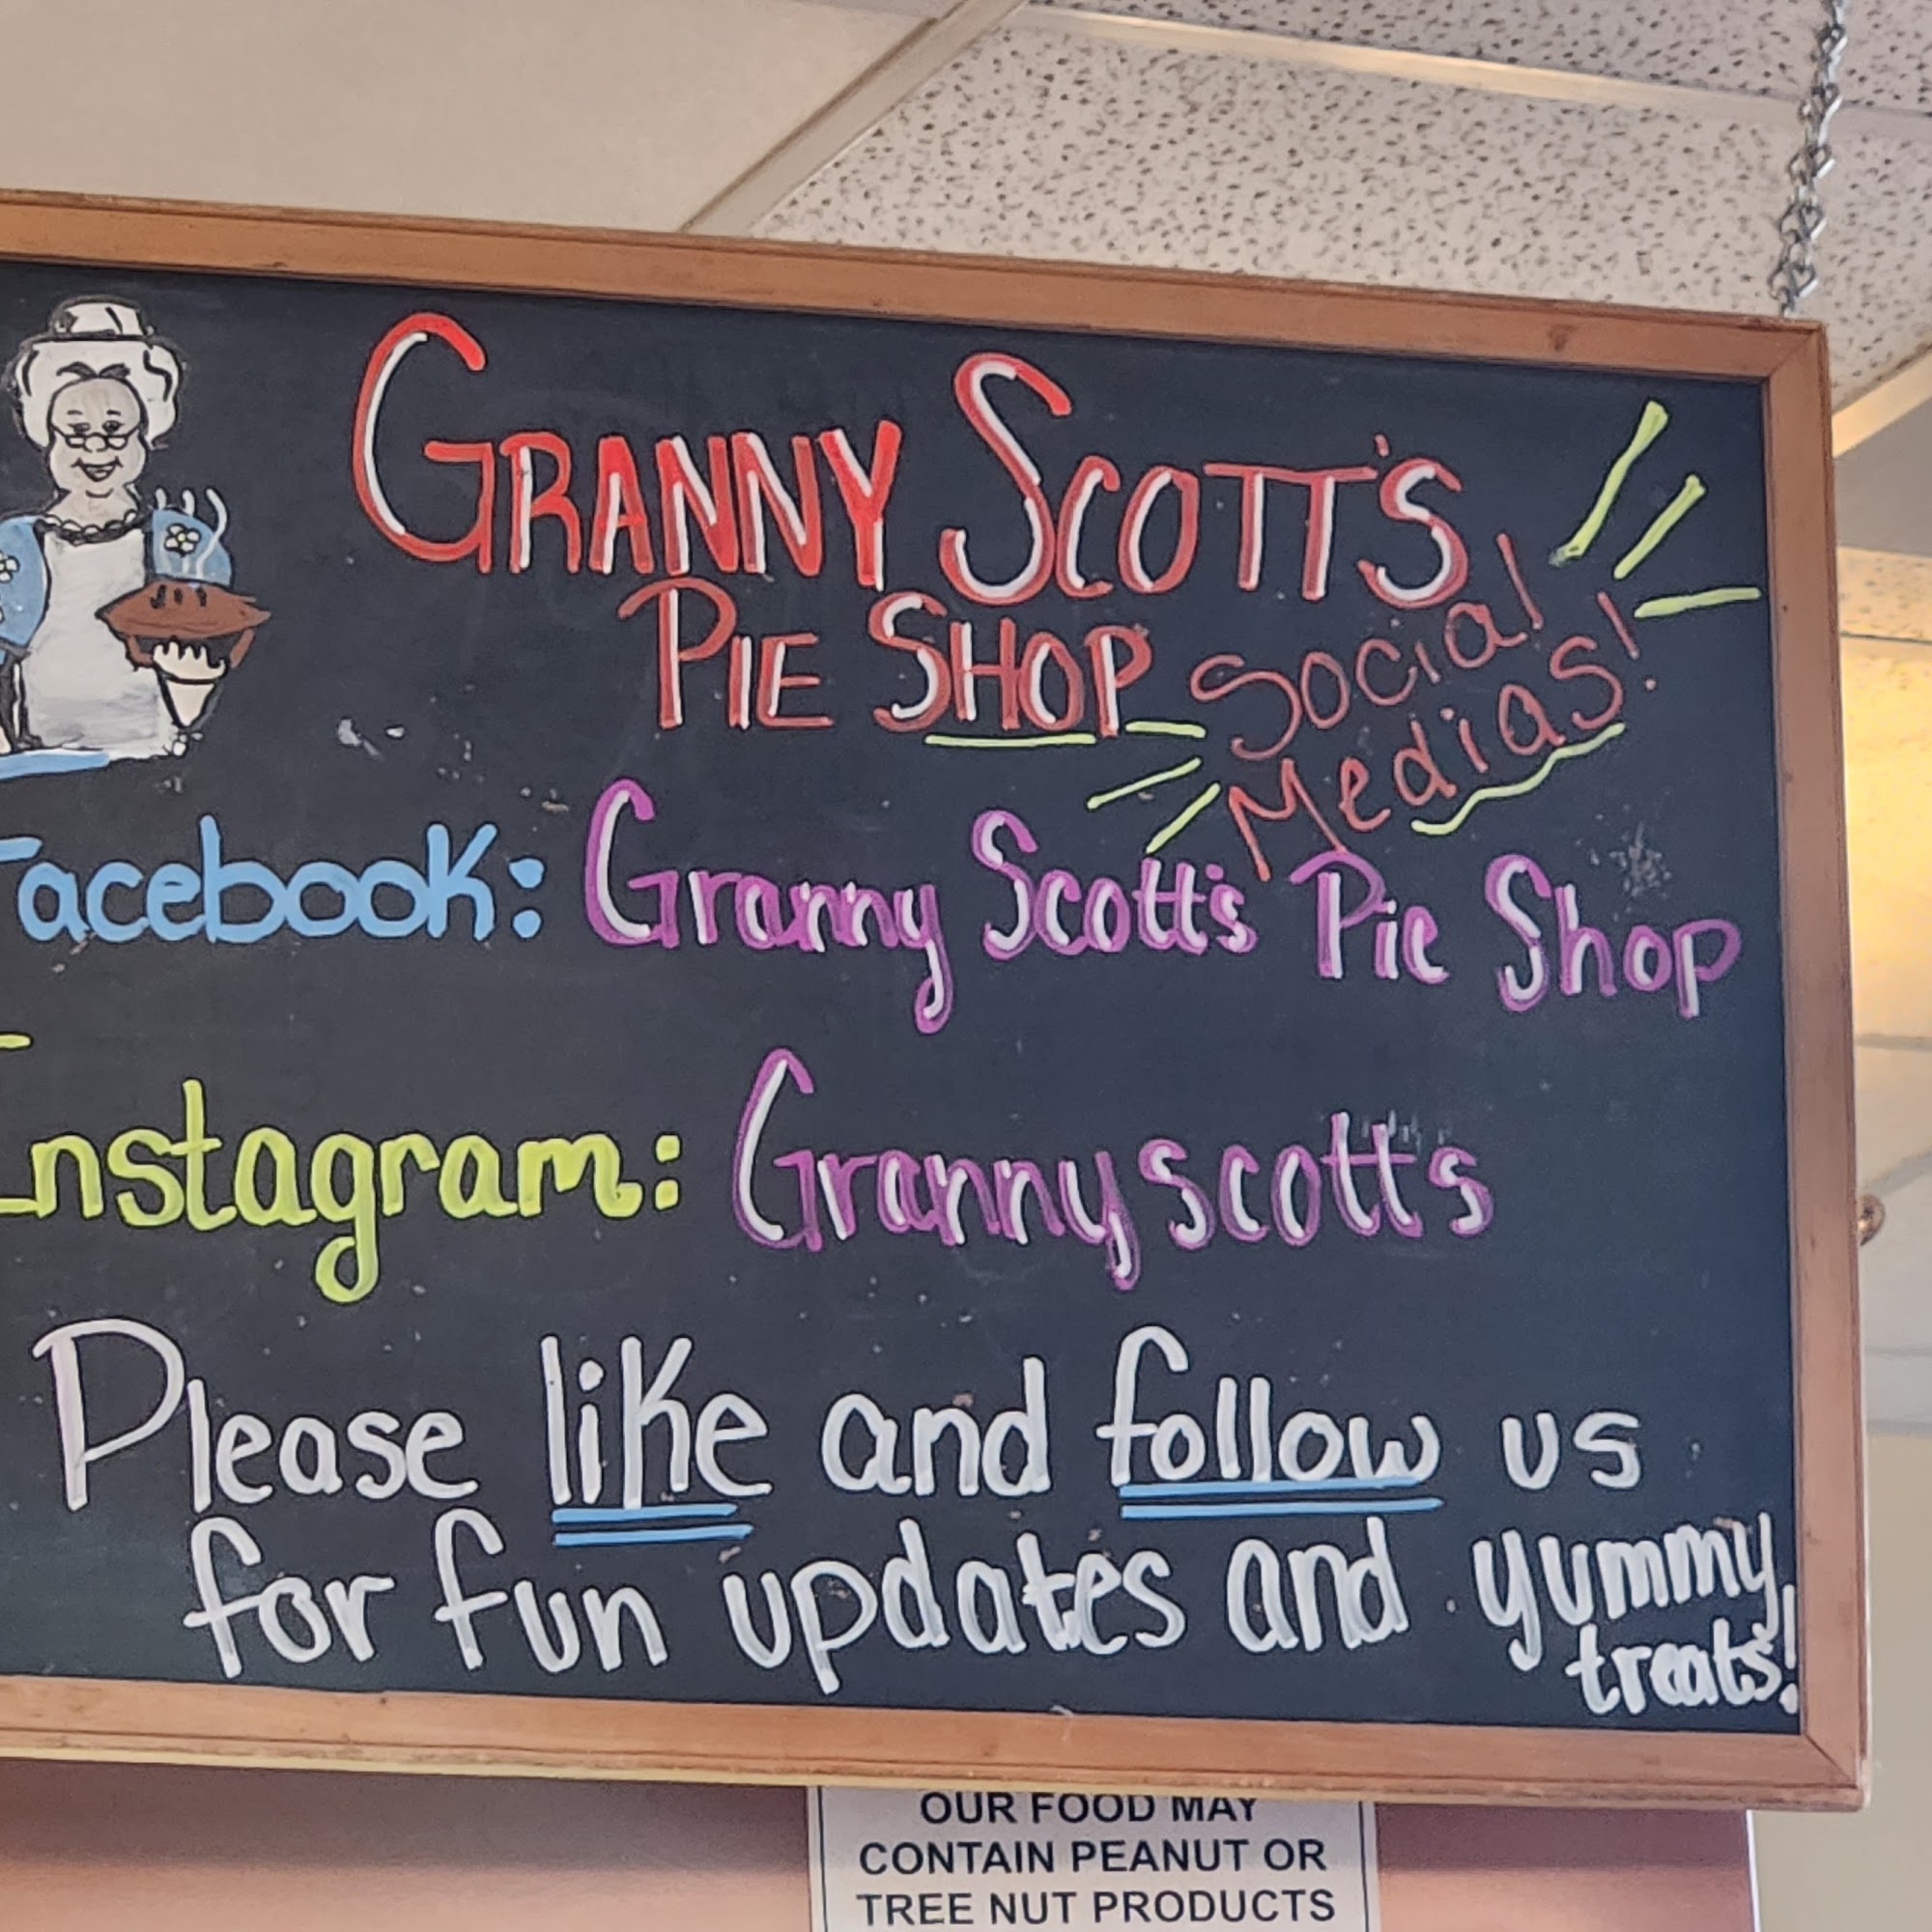 GRANNY SCOTT'S
PIE SHOP
Social
Medias!
Facebook: Granny Scott's Pie Shop
Instagram: Grannyscotts
Please like and follow us
for fun updates and yummy
treats!
OUR FOOD MAY
CONTAIN PEANUT OR
TREE NUT PRODUCTS